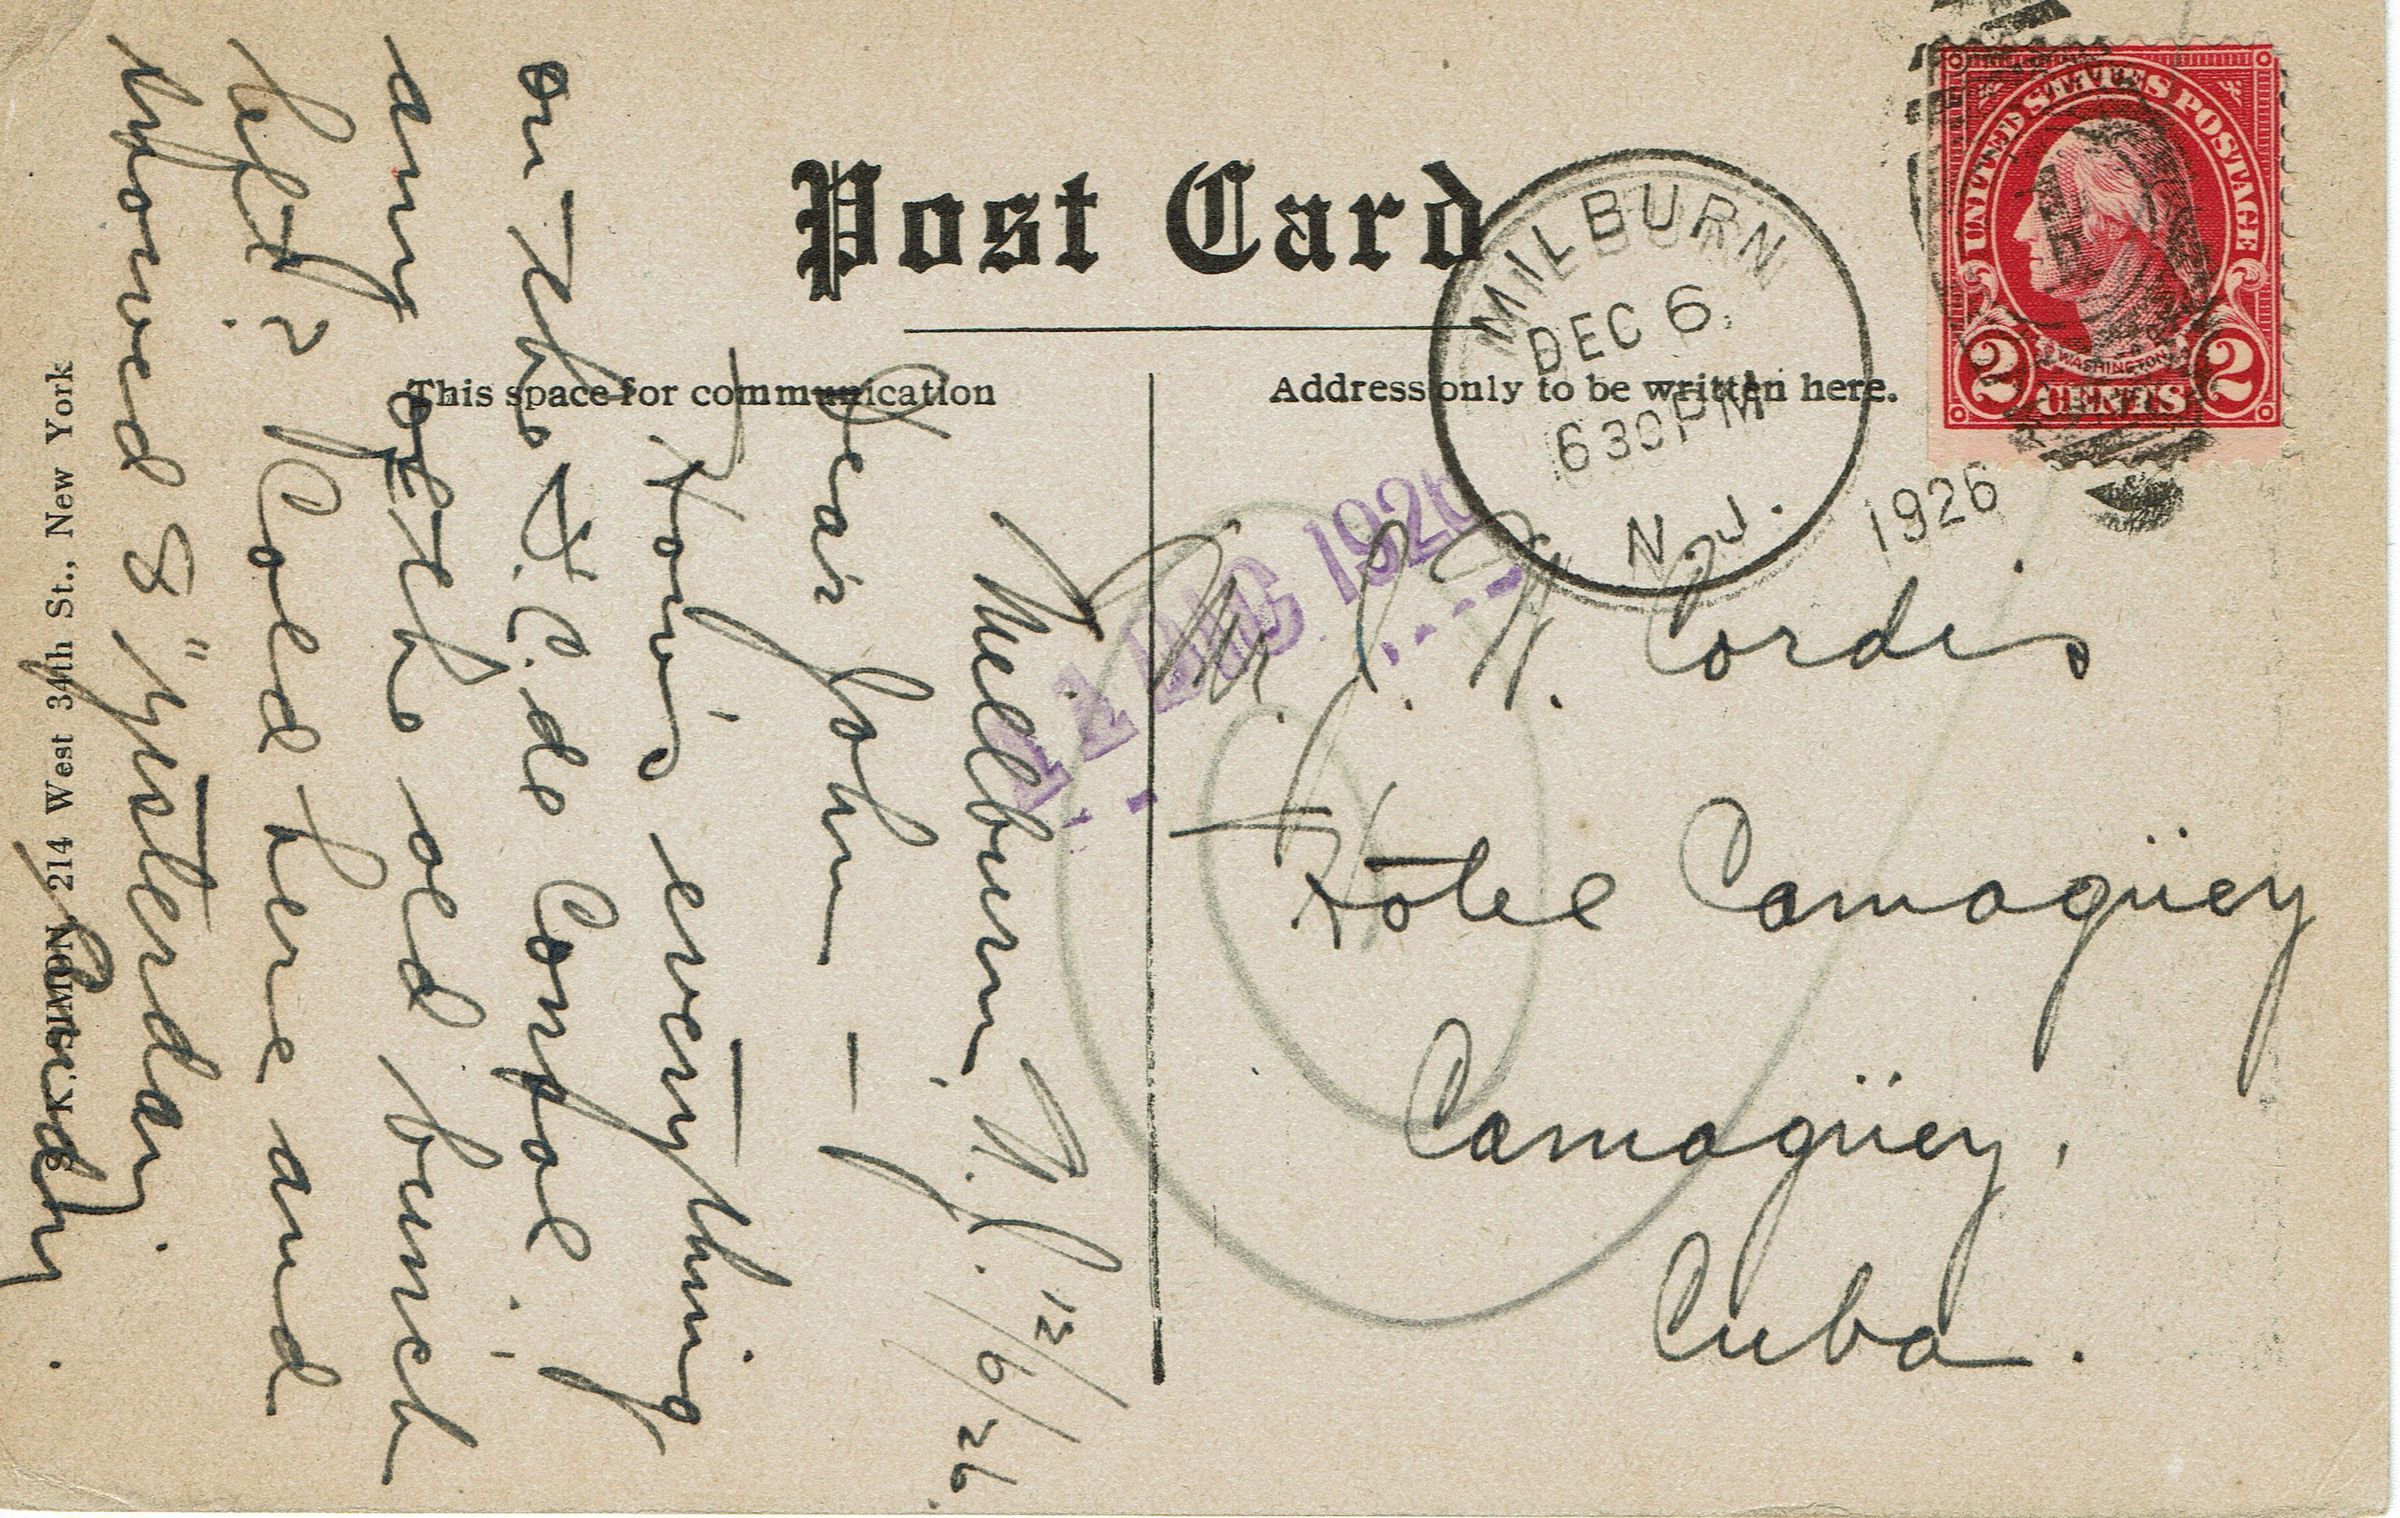 Post Card
This space for communication
Address only to be written here.
UNITED STATES POSTAGE
WASHINGTON
2 CENTS 2
MILBURN
DEC 6
630 PM
N.J.
1926
DIC 1926
Millburn, N.J. 12/6/26.
Dear John —
How's everything
on the F. C. de Consol. ; if
any of the old bunch
left? Cold here and
snowed 8" yesterday.
Mr. J. H. Cordis
Hotel Camagüey
Camagüey,
Cuba.
K. SIMON 214 West 34th St., New York